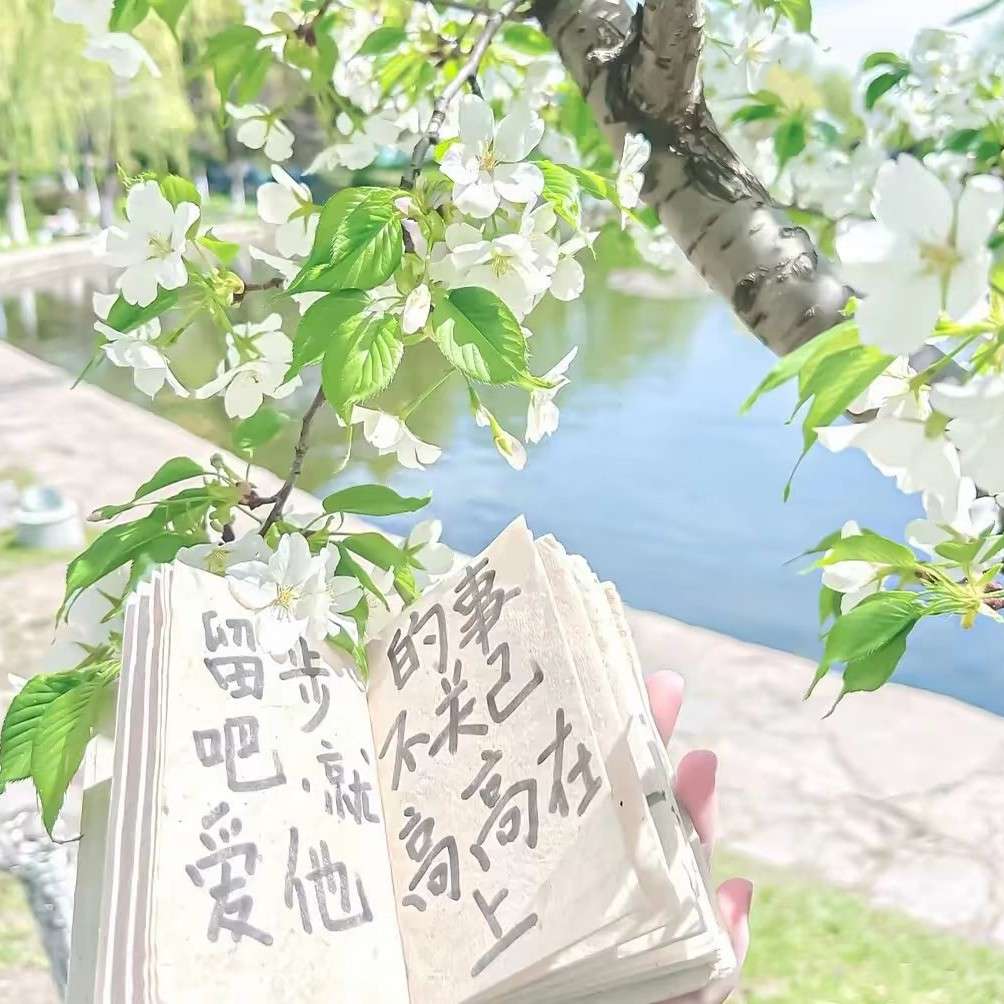 留步
吧.就
爱他
的事
不关己
高高在
上